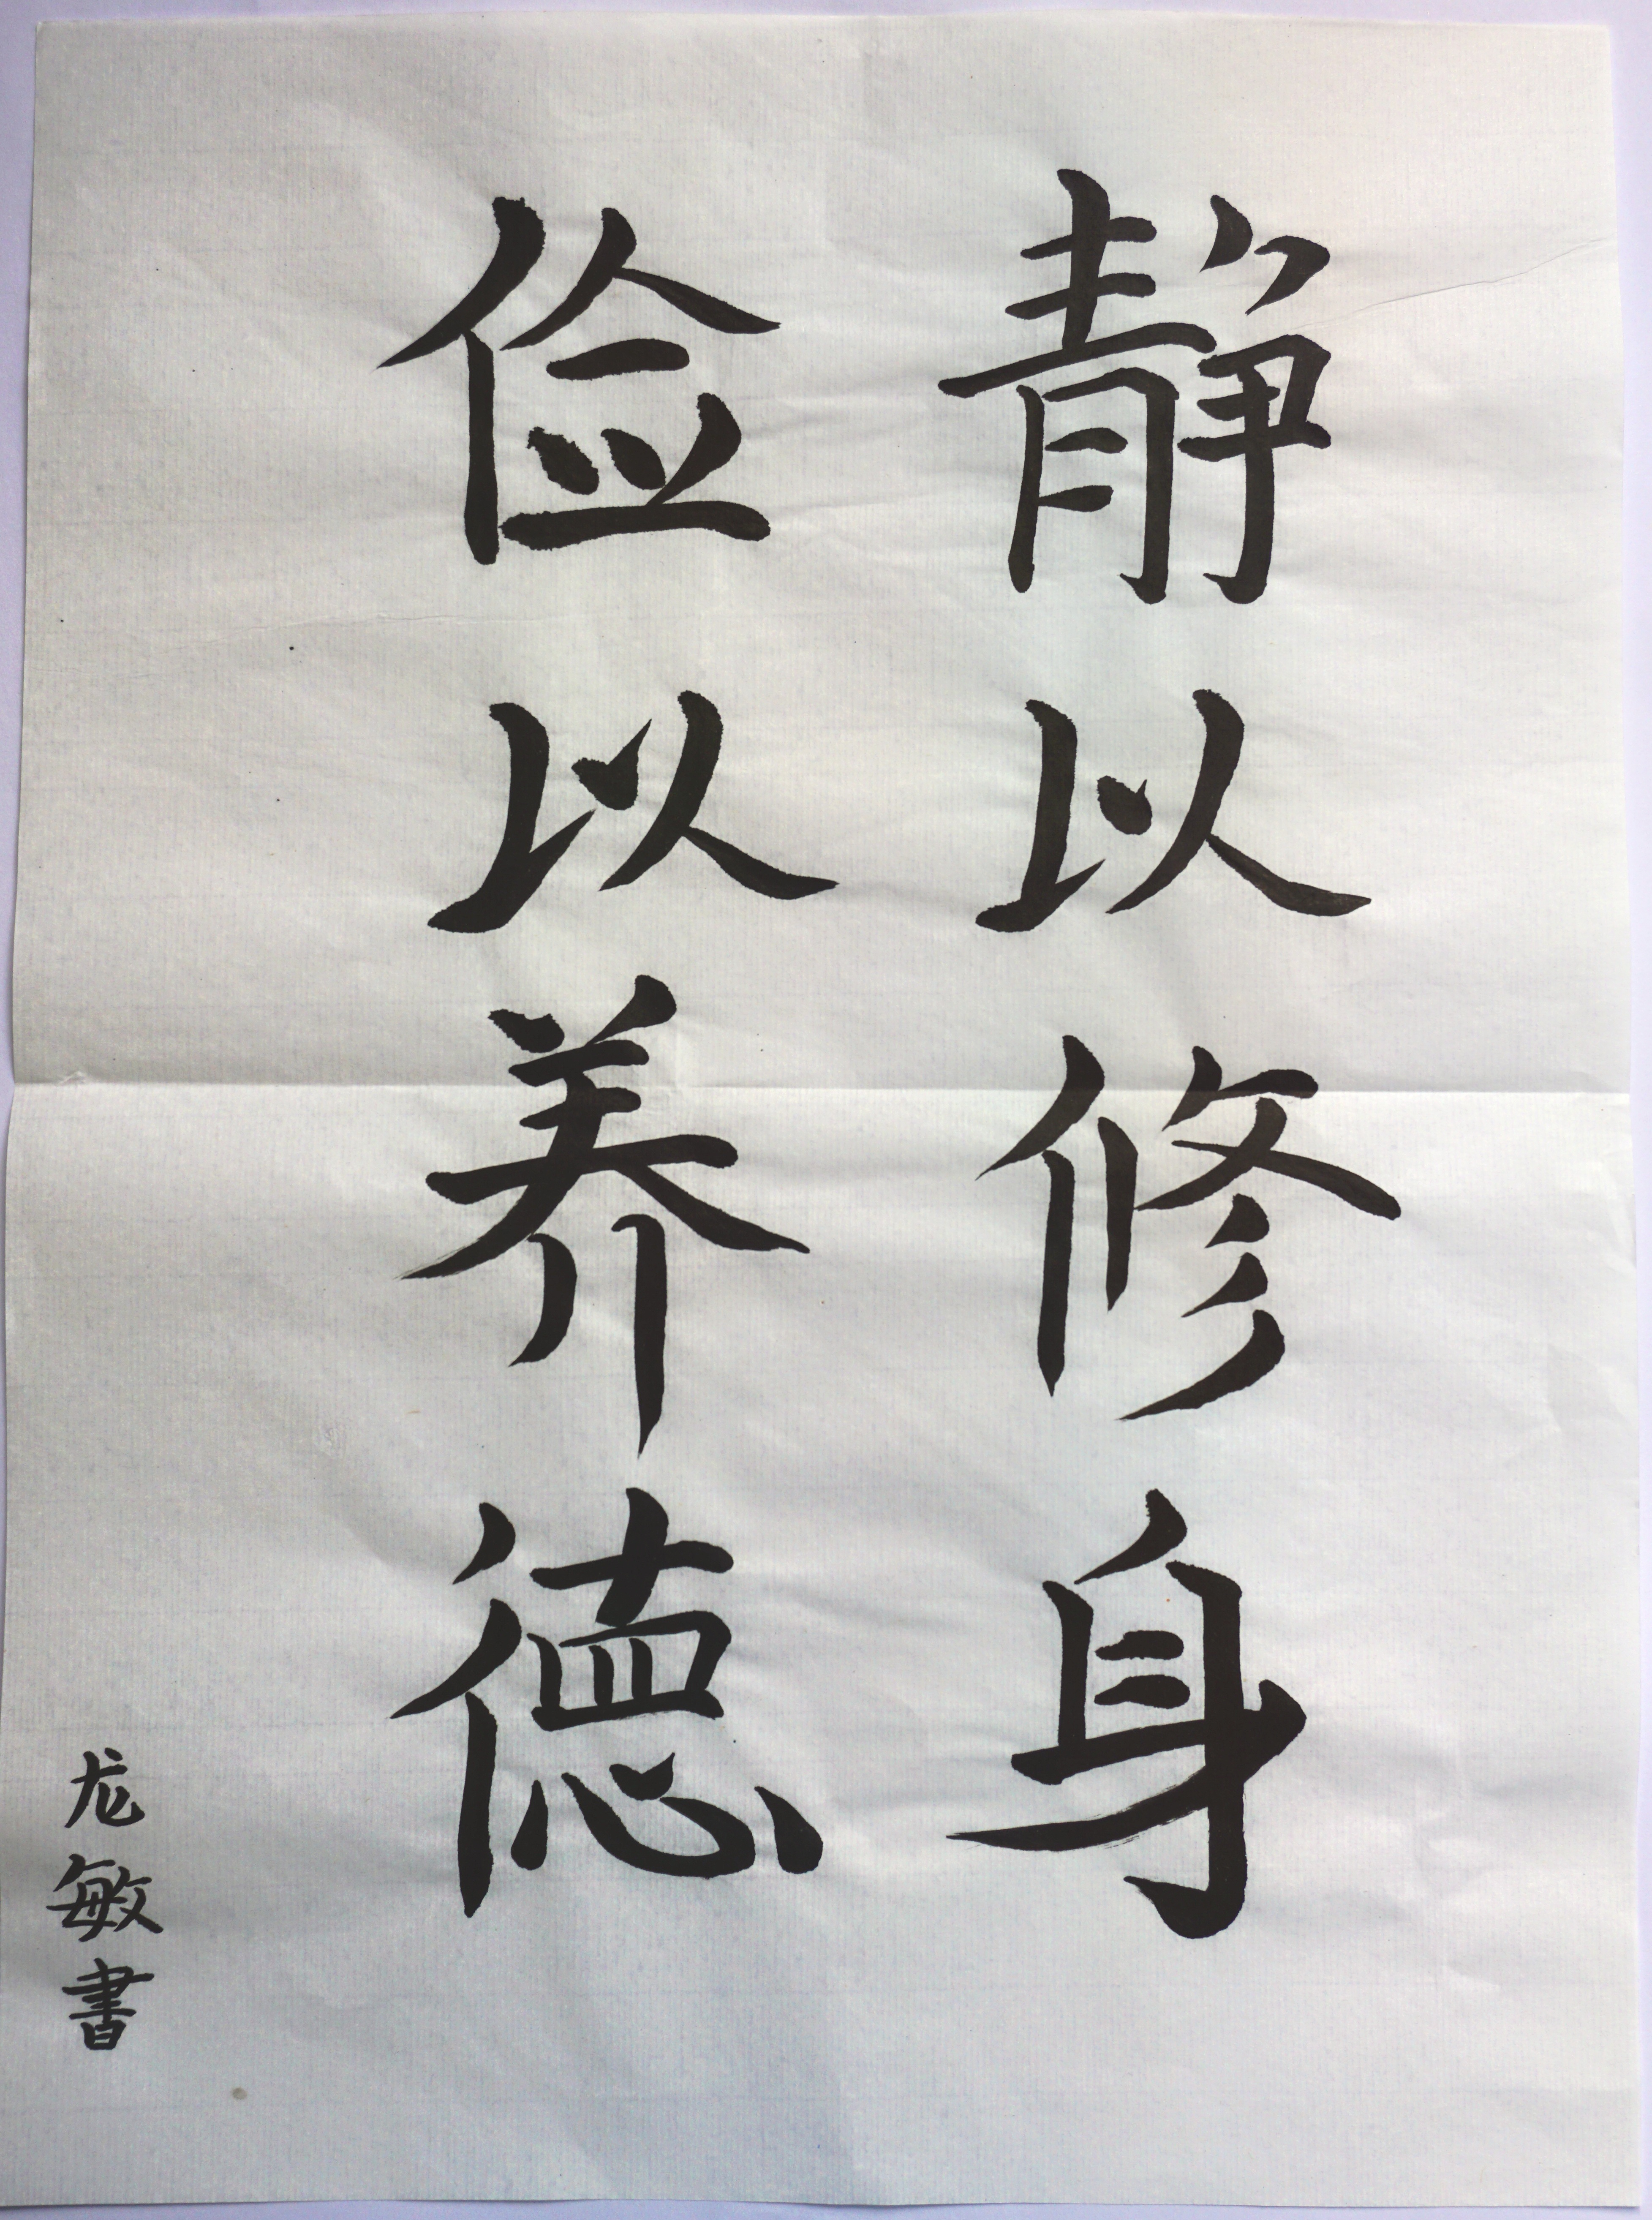 静以修身
俭以养德
龙敏書